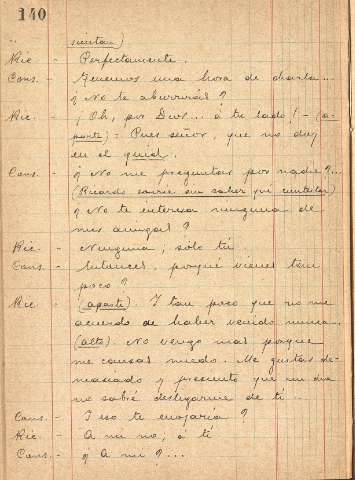 140
" sientan)
Ric - Perfectamente.
Cons. - Tenemos una hora de charla...
¿ No te aburrirás ?
Ric. - ¡ Oh, por Dios... á tu lado ! - (a-
parte) = Pues señor, que no doy
en el quid.
Cons. - ¿ No me preguntas por nadie ?...
(Ricardo sonrie sin saber qué contestar)
¿ No te interesa ninguna de
mis amigas ?
Ric. - Ninguna ; sólo tú.
Cons. - Entonces, porqué vienes tan
poco ?
Ric. - (aparte). Y tan poco que no me
acuerdo de haber venido nunca.
(alto). No vengo mas porque
me causas miedo. Me gustas de-
masiado y presiento que un dia
no sabré desligarme de ti...
Cons. - Y eso te enojaría ?
Ric. - A mi no ; á ti
Cons. - ¿ A mi ?...